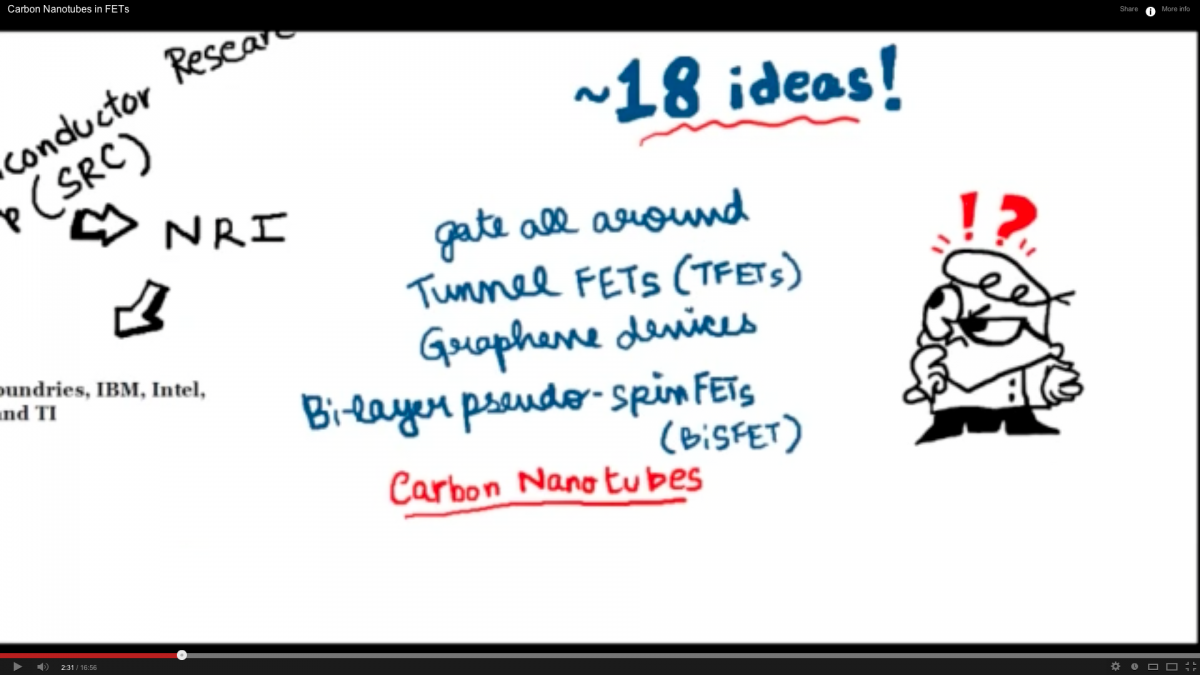 Carbon Nanotubes in FETs
Share
More info
conductor Resear
(SRC)
NRI
oundries, IBM, Intel,
nd TI
~18 ideas!
gate all around
Tunnel FETs (TFETs)
Graphene devices
Bi-layer pseudo-spinFETs
(BiSFET)
Carbon Nanotubes
!?
2:31 / 16:56